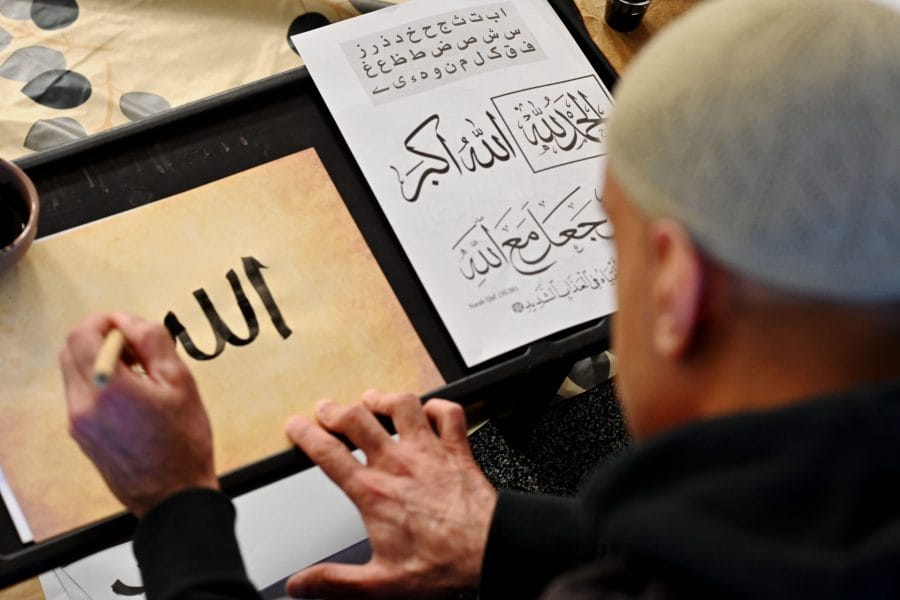 ا ب ت ث ج ح خ د ذ ر ز
س ش ص ض ط ظ ع غ
ف ق ك ل م ن و ه ء ي ے
الحمد لله
الله اكبر
جعل مع الله
في العذاب الشديد
Surah Qaf (50:26)
الل